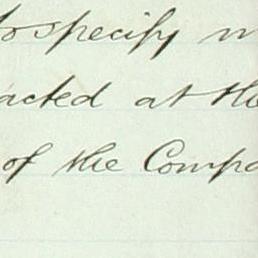 to specify
acted at the
of the Compa